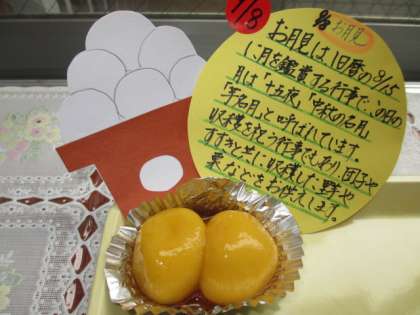 9/8 お月見
お月見は、旧暦の8/15
に月を鑑賞する行事で、この日の
月は「十五夜」「中秋の名月」
「芋名月」と呼ばれています。
収穫を祝う行事でもあり、団子や
すすきと共に収穫した野菜
などをお供えします。